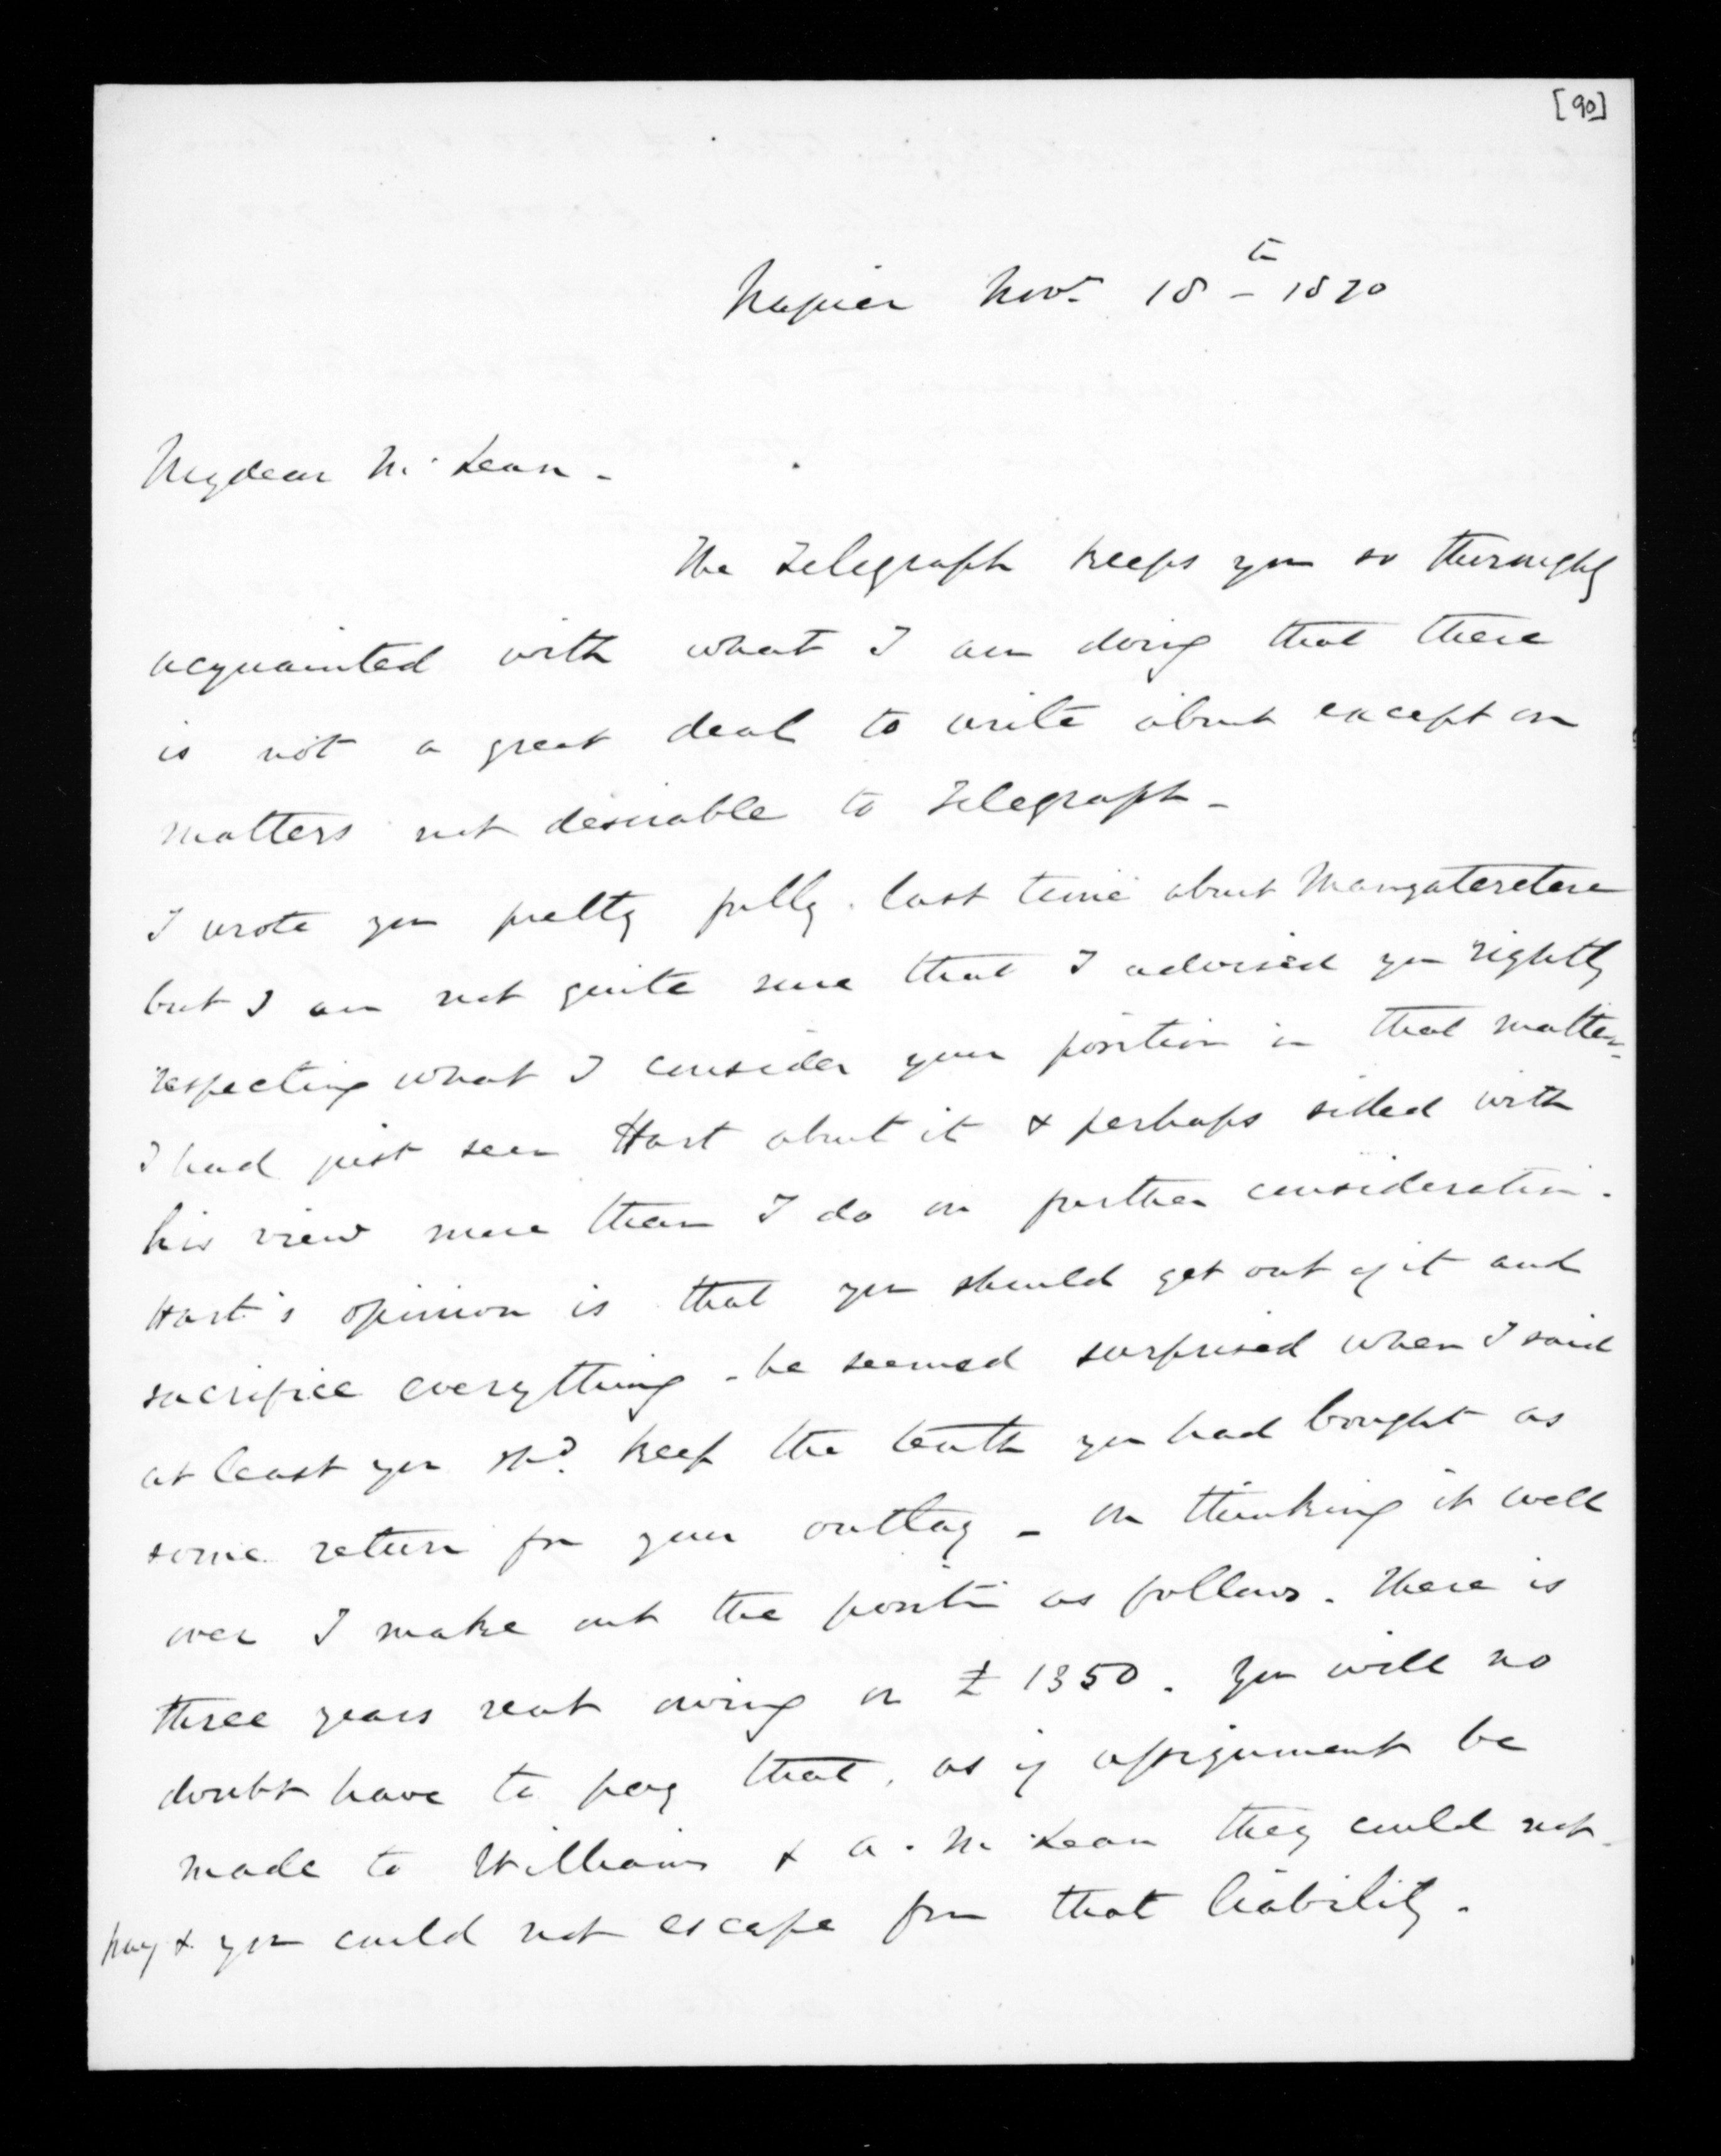 [90]
Napier Novr 18th 1870
My dear McLean -
The Telegraph keeps you so thoroughly
acquainted with what I am doing that there
is not a great deal to write about except on
matters not desirable to Telegraph -
I wrote you pretty fully last time about Mangateretere
but I am not quite sure that I advised you rightly
respecting what I consider your position in that matter -
I had just seen Hart about it & perhaps sided with
his view more than I do on further consideration.
Hart's opinion is that you should get out of it and
sacrifice everything - he seemed surprised when I said
at least you shd. keep the tenth you had bought as
some return for your outlay - On thinking it well
over I make out the positn as follows. There is
three years rent owing or £1350. You will no
doubt have to pay that, as if assignment be
made to Williams & A. McLean they could not
pay & you could not escape from that liability.